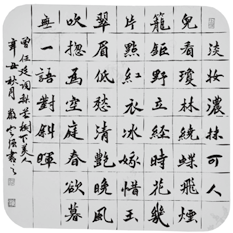 淡妝濃抹可人
兒看瓊林繞蝶飛煙
籠野立經時花幾
片點紅衣冰嫁惜玉
翠眉低愁清艷晚風
吹揔為空庭春欲暮
無一語對斜暉
詞樹下美人
辛丑秋月書